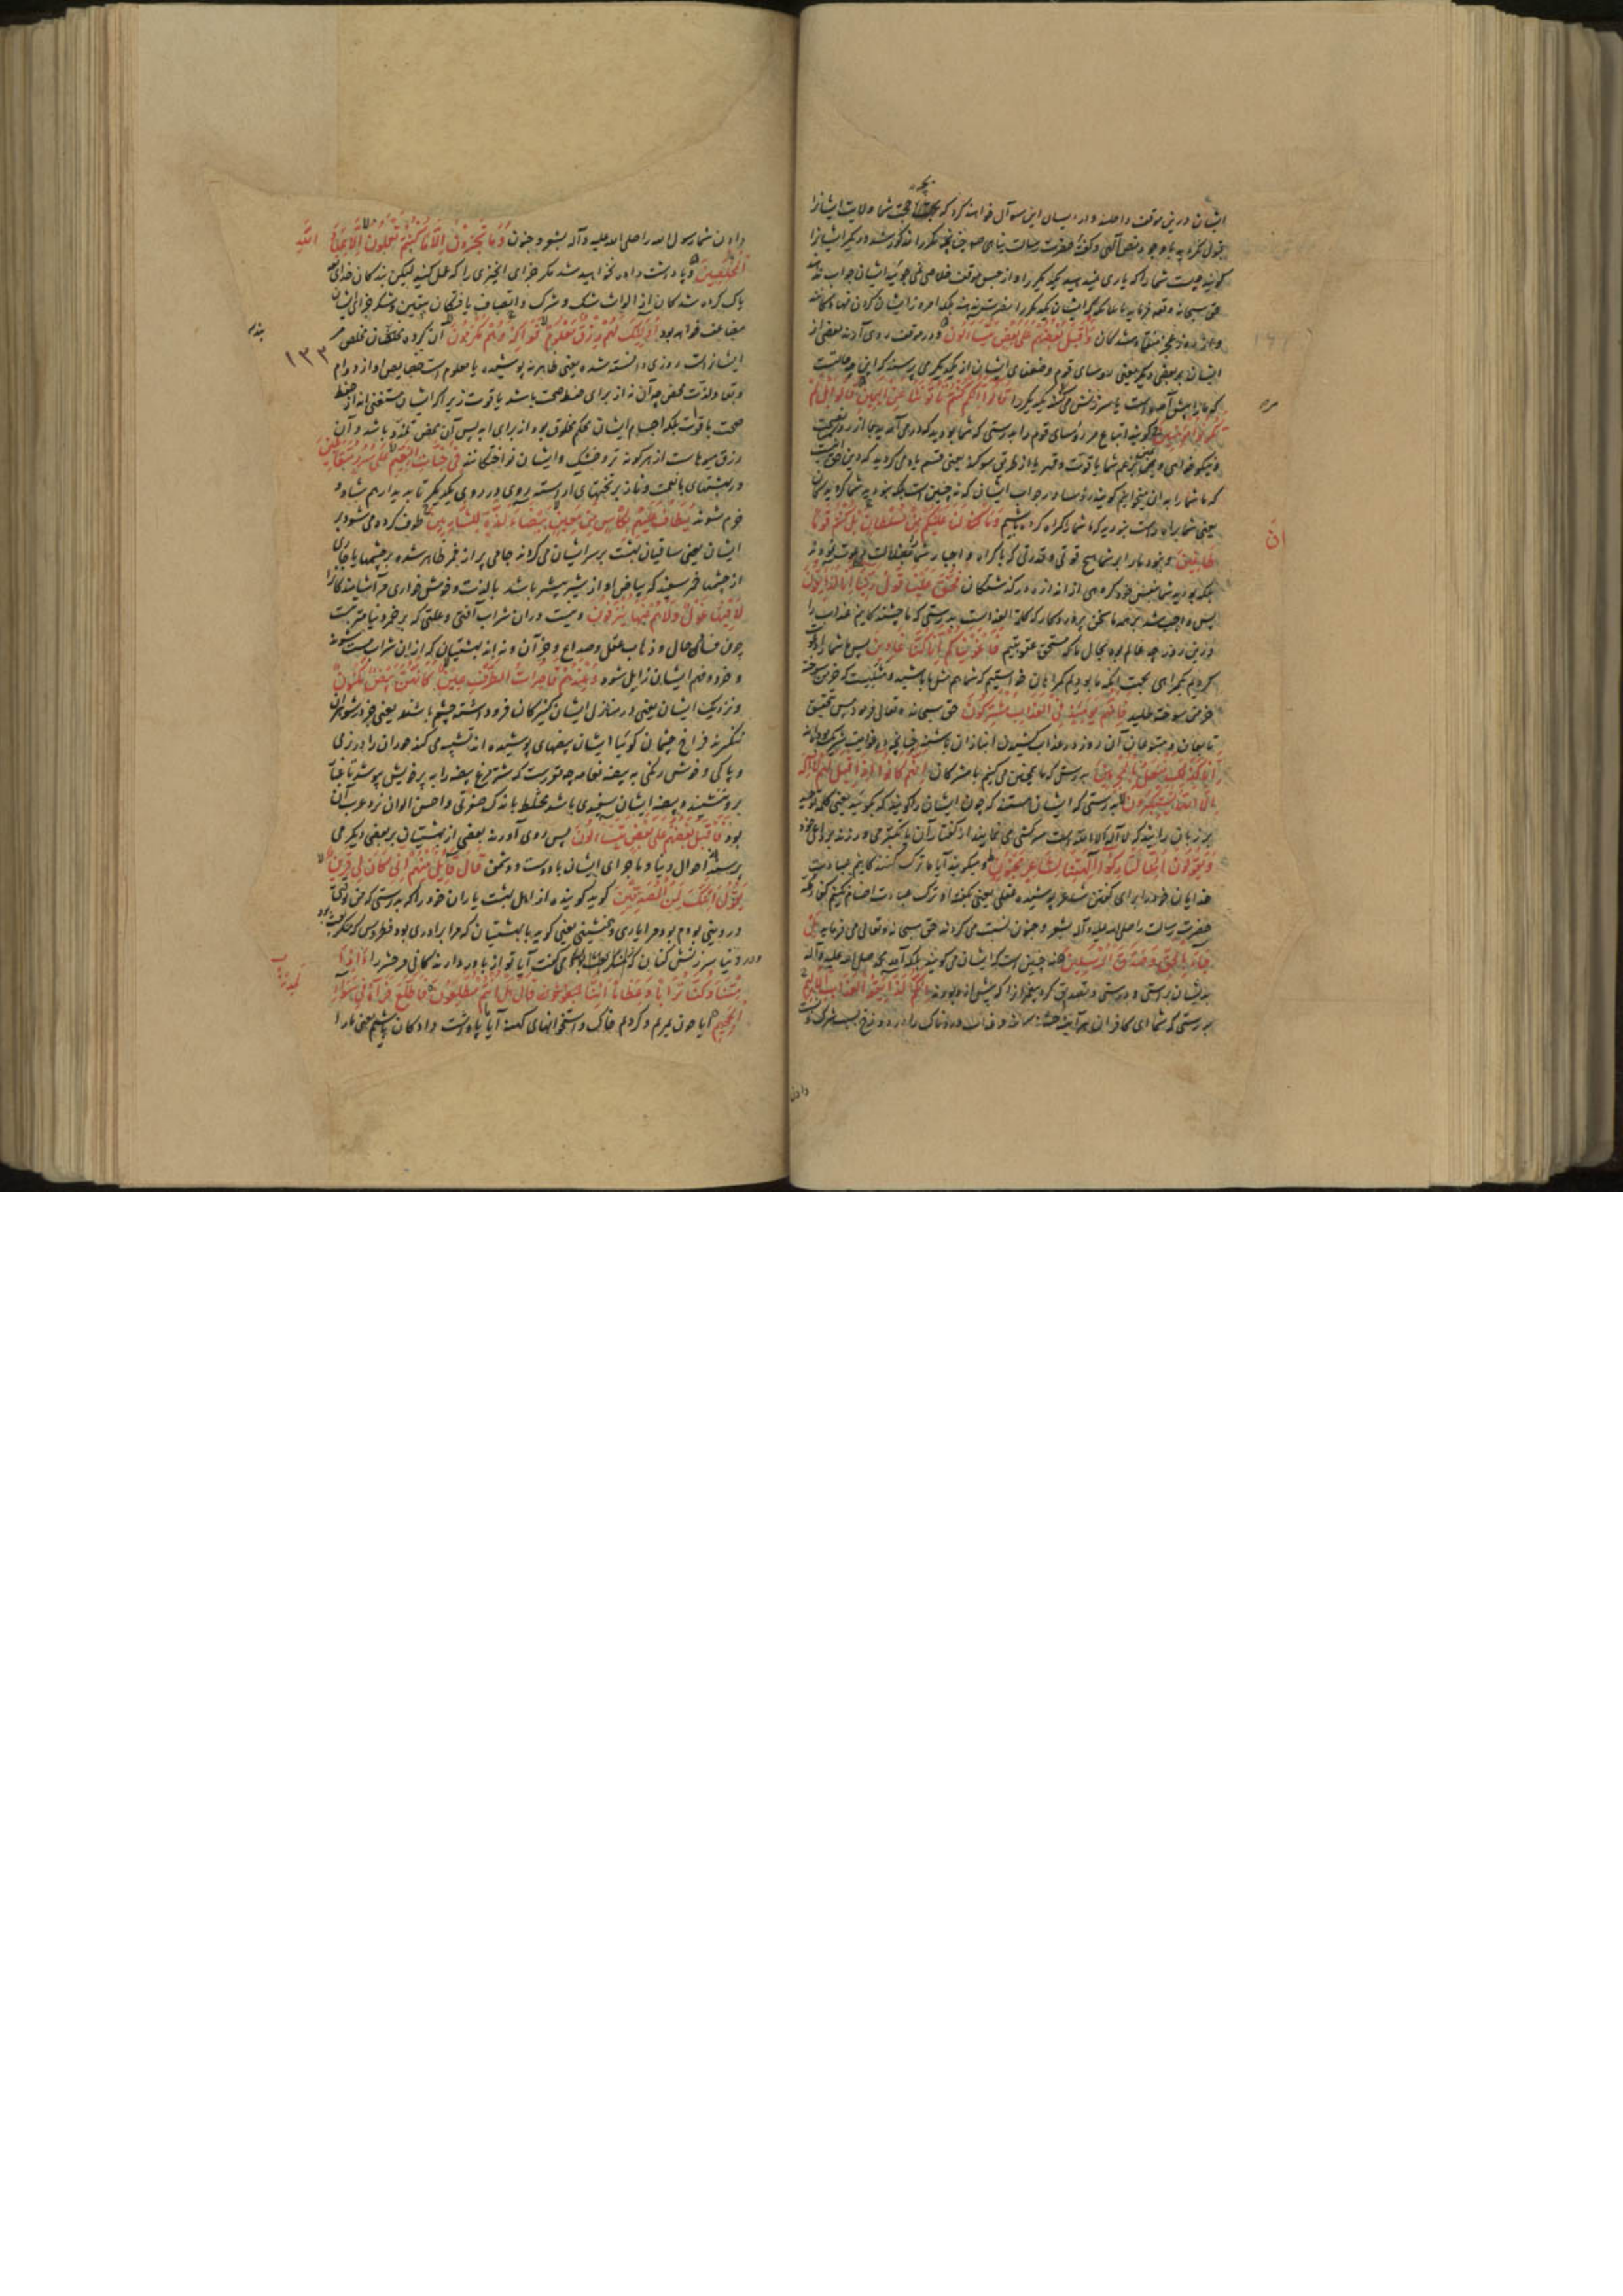 ایشان درین موقف داخلند و از ایشان این سوآل خواهند کرد که بچه حجت شما ولایت ایشانرا
قبول نکردید با وجود نص آلهی و گفتهٔ حضرت رسالت پناهی چنانچه مذکور شد و دیگر ایشانرا
گویند چیست شما را که یاری نمیدهید یکدیگر را و از حبس موقف خلاصی نمی‌جوئید ایشان جواب ندهند
حق سبحانه و تعالی فرماید
و از روی عجز منقاد شدگان وَأَقْبَلَ بَعْضُهُمْ عَلَى بَعْضٍ يَتَسَاءَلُونَ و در موقف روی آرند بعضی از
ایشان بر بعضی دیگر یعنی رؤسای قوم و ضعفای ایشان از یکدیگر می‌پرسند که این چه حالتست
که ما را پیش آمده است یا سرزنش می‌کنند یکدیگر را قَالُوا إِنَّكُمْ كُنْتُمْ تَأْتُونَنَا عَنِ الْيَمِينِ قَالُوا بَلْ لَمْ
تَكُونُوا مُؤْمِنِينَ گویند اتباع مر رؤسای قوم را بدرستی که شما بودید که در می‌آمدید بما از روی نصیحت
و نیکو خواهی یا بزعم شما یا قوت و قهر یا از طریق سوگند یعنی قسم یاد می‌کردید که دین حق اینست
که ما شما را به آن میخوانیم گویند رؤسا در جواب ایشان که نه چنین است بلکه نبودید شما گرویدگان
یعنی شما براه راست نبودید که ما شما را گمراه کرده باشیم وَمَا كَانَ لَنَا عَلَيْكُمْ مِنْ سُلْطَانٍ بَلْ كُنْتُمْ قَوْمًا
طَاغِينَ و نبود ما را بر شما هیچ قوتی و قدرتی که باکراه و اجبار شما را بضلالت دعوت نمودیم
بلکه بودید شما بنفس خود گروهی از اندازه درگذشتگان فَحَقَّ عَلَيْنَا قَوْلُ رَبِّنَا إِنَّا لَذَائِقُونَ
پس واجب شد بر همه ما سخن پروردگار که کلمة العذابست بدرستی که ما چشندگانیم عذاب را
درین روز چه عالم بود بحال ما که مستحق عقوبتیم فَأَغْوَيْنَاكُمْ إِنَّا كُنَّا غَاوِينَ پس ما شما را دعوت
کردیم بگمراهی بجهت آنکه ما بودیم گمراهان خواستیم که شما هم مثل ما باشید
خرمن سوخته طلبد فَإِنَّهُمْ يَوْمَئِذٍ فِي الْعَذَابِ مُشْتَرِكُونَ حق سبحانه و تعالی فرمود پس بتحقیق
تابعان و متبوعان آن روز در عذاب کشیدن انبازان باشند چنانچه در غوایت شریک بودند
إِنَّا كَذَلِكَ نَفْعَلُ بِالْمُجْرِمِينَ بدرستی که ما همچنین می‌کنیم با مشرکان إِنَّهُمْ كَانُوا إِذَا قِيلَ لَهُمْ لَا إِلَهَ
إِلَّا اللَّهُ يَسْتَكْبِرُونَ بدرستی که ایشان هستند که چون ایشان را گویند که بگوئید یعنی کلمه توحید
بر زبان رانید که لا اله الا الله است سرکشی می‌نمایند از گفتار آن یا تکبر می‌ورزند بر داعی خود
وَيَقُولُونَ أَئِنَّا لَتَارِكُوا آلِهَتِنَا لِشَاعِرٍ مَجْنُونٍ و میگویند آیا ما ترک کنندگانیم عبادت
خدایان خود را برای گفتن شاعر پوشیده عقلی یعنی بگفته او ترک عبادت اصنام نکنیم کفار مکه
حضرت رسالت را صلی الله علیه و آله بشعر و جنون نسبت می‌کردند حق سبحانه و تعالی می‌فرماید بَلْ
جَاءَ بِالْحَقِّ وَصَدَّقَ الْمُرْسَلِينَ نه چنین است که ایشان می‌گویند بلکه آمد محمد صلی الله علیه و آله
بدیشان براستی و درستی و تصدیق کرد پیغمبرانرا که پیش از او بودند إِنَّكُمْ لَذَائِقُوا الْعَذَابِ الْأَلِيمِ
بدرستی که شما ای کافران هرآینه چشندگانید عذاب دردناک را در دوزخ بسبب شرک و نسبت
دادن
ان
دادن شما رسول الله را صلی الله علیه و آله بشعر و جنون وَمَا تُجْزَوْنَ إِلَّا مَا كُنْتُمْ تَعْمَلُونَ إِلَّا عِبَادَ اللَّهِ
الْمُخْلَصِينَ و پاداشت داده نخواهید شد مگر جزای آنچیزی را که عمل کنید لیکن بندگان خدای که
پاک کرده شدگان اند از الواث شک و شرک و اتصاف یافتگان بیقین و شکر جزای ایشان
مضاعف خواهد بود أُولَئِكَ لَهُمْ رِزْقٌ مَعْلُومٌ فَوَاكِهُ وَهُمْ مُكْرَمُونَ آن گروه مخلصان مر
ایشانراست روزی دانسته شده یعنی ظاهر نه پوشیده یا معلوم است خصایص او از دوام
و بقا و لذت محض چه آن نه از برای حفظ صحت باشد یا قوت زیرا که ایشان مستغنی‌اند از حفظ
صحت یا قوت بلکه اجسام ایشان محکم مخلوق بود از برای ابد پس آن محض تلذذ باشد و آن
رزق میوهاست از هرگونه تر و خشک و ایشان نواختگانند فِي جَنَّاتِ النَّعِيمِ عَلَى سُرُرٍ مُتَقَابِلِينَ
در بهشتهای بانعمت و ناز بر تختهای آراسته روی در روی یکدیگر تا به دیدار هم شاد و
خرم شوند يُطَافُ عَلَيْهِمْ بِكَأْسٍ مِنْ مَعِينٍ بَيْضَاءَ لَذَّةٍ لِلشَّارِبِينَ طوف کرده می‌شود بر
ایشان یعنی ساقیان بهشت بر سر ایشان می‌گردند جامی پر از خمر ظاهر شده بر چشمها یا جاری
از چشمها خمر سفید که بیاض او از شیر بیشتر باشد با لذت و خوش‌خواری مر آشامندگانرا
لَا فِيهَا غَوْلٌ وَلَا هُمْ عَنْهَا يُنْزَفُونَ و نیست در آن شراب آفتی و علتی که بر خمر دنیا مترتبست
چون فساد حال و ذهاب عقل و صداع و جز آن و نه‌اند بهشتیان که از آن شراب مست شوند
و خرد و فهم ایشان زایل شود وَعِنْدَهُمْ قَاصِرَاتُ الطَّرْفِ عِينٌ كَأَنَّهُنَّ بَيْضٌ مَكْنُونٌ
و نزدیک ایشان یعنی در منازل ایشان کنیزکان فروداشته چشم باشند یعنی جز در شوهران
ننگرند فراخ چشمان گوئیا ایشان بیضهای پوشیده‌اند تشبیه می‌کند حوران را در زی
و پاکی و خوش رنگی به بیضه نعامه چه مقررست که شترمرغ بیضه را به پر خویش پوشد تا غبار
بر و ننشیند و بیضه ایشان سفیدی باشد مخلط باندک صفرتی و احسن الوان نزد عرب آن
بود فَأَقْبَلَ بَعْضُهُمْ عَلَى بَعْضٍ يَتَسَاءَلُونَ پس روی آورند بعضی از بهشتیان بر بعضی دیگر می
پرسند از احوال دنیا و ماجرای ایشان با دوست و دشمن قَالَ قَائِلٌ مِنْهُمْ إِنِّي كَانَ لِي قَرِينٌ
يَقُولُ أَئِنَّكَ لَمِنَ الْمُصَدِّقِينَ گوید گوینده از اهل بهشت یاران خود را که بدرستی که من وقتی
در دنیا بودم بود مرا یاری و همنشینی یعنی گوید با بهشتیان که مرا برادری بود فطروس که منکر بعث بود
در دنیا سرزنش کنان می‌گفت آیا تو از باوردارندگانی مر حشر را أَإِذَا
مِتْنَا وَكُنَّا تُرَابًا وَعِظَامًا أَئِنَّا لَمَدِينُونَ قَالَ هَلْ أَنْتُمْ مُطَّلِعُونَ فَاطَّلَعَ فَرَآهُ فِي سَوَاءِ
الْجَحِيمِ آیا چون بمیریم و گردیم خاک و استخوانهای کهنه آیا پاداشت دادگان باشیم یعنی ما را
۱۳۲